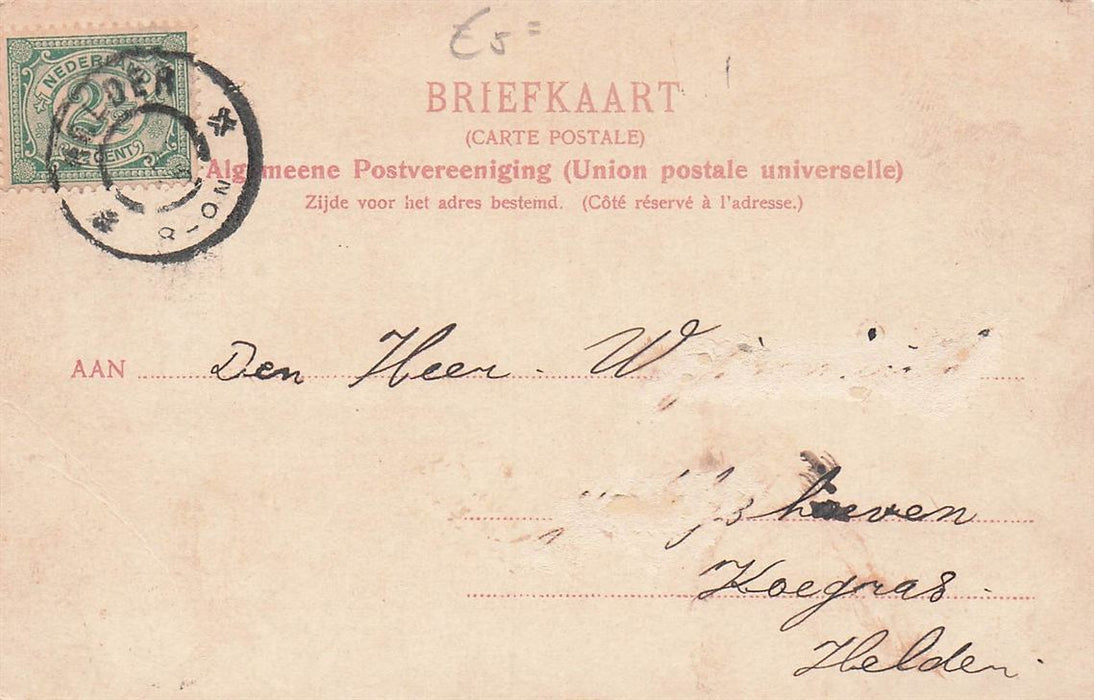 £5=
NEDERLAND
2½
CENT
HELDER
8-ON
BRIEFKAART
(CARTE POSTALE)
Algemeene Postvereeniging (Union postale universelle)
Zijde voor het adres bestemd. (Côté réservé à l'adresse.)
AAN Den Heer. W
hoeven
Koegras.
Helder.